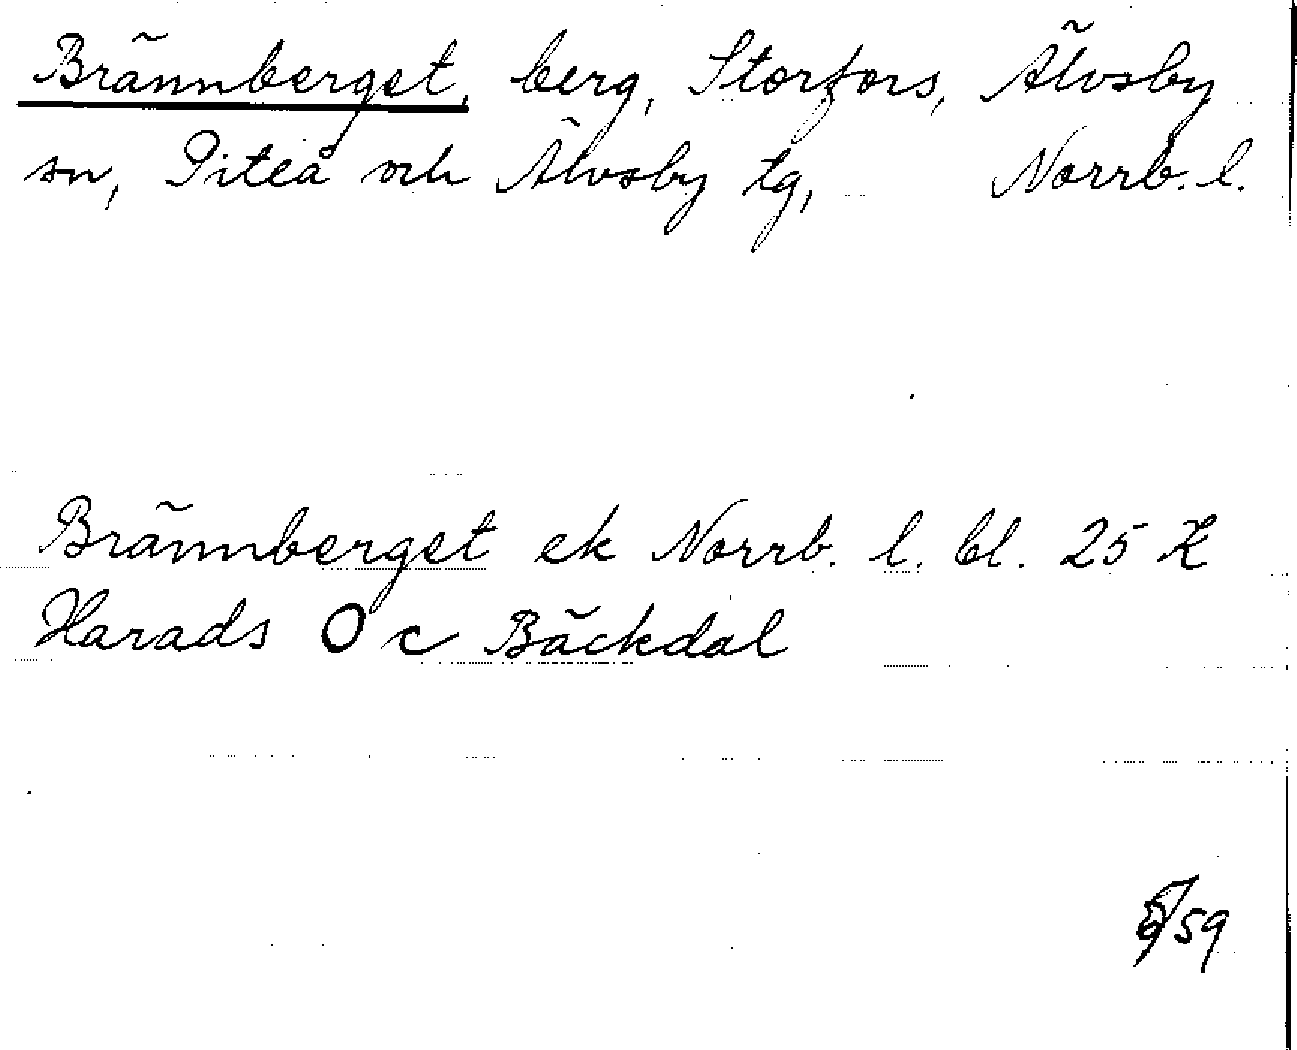 Brännberget, berg, Storfors, Älvsby
sn, Piteå och Älvsby tg, Norrb. l.
Brännberget ek Norrb. l. bl. 25 K
Harads O c Bäckdal
/59